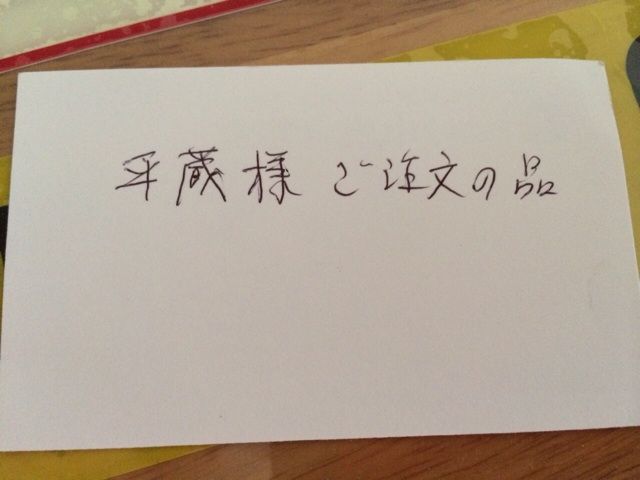 平蔵様 ご注文の品